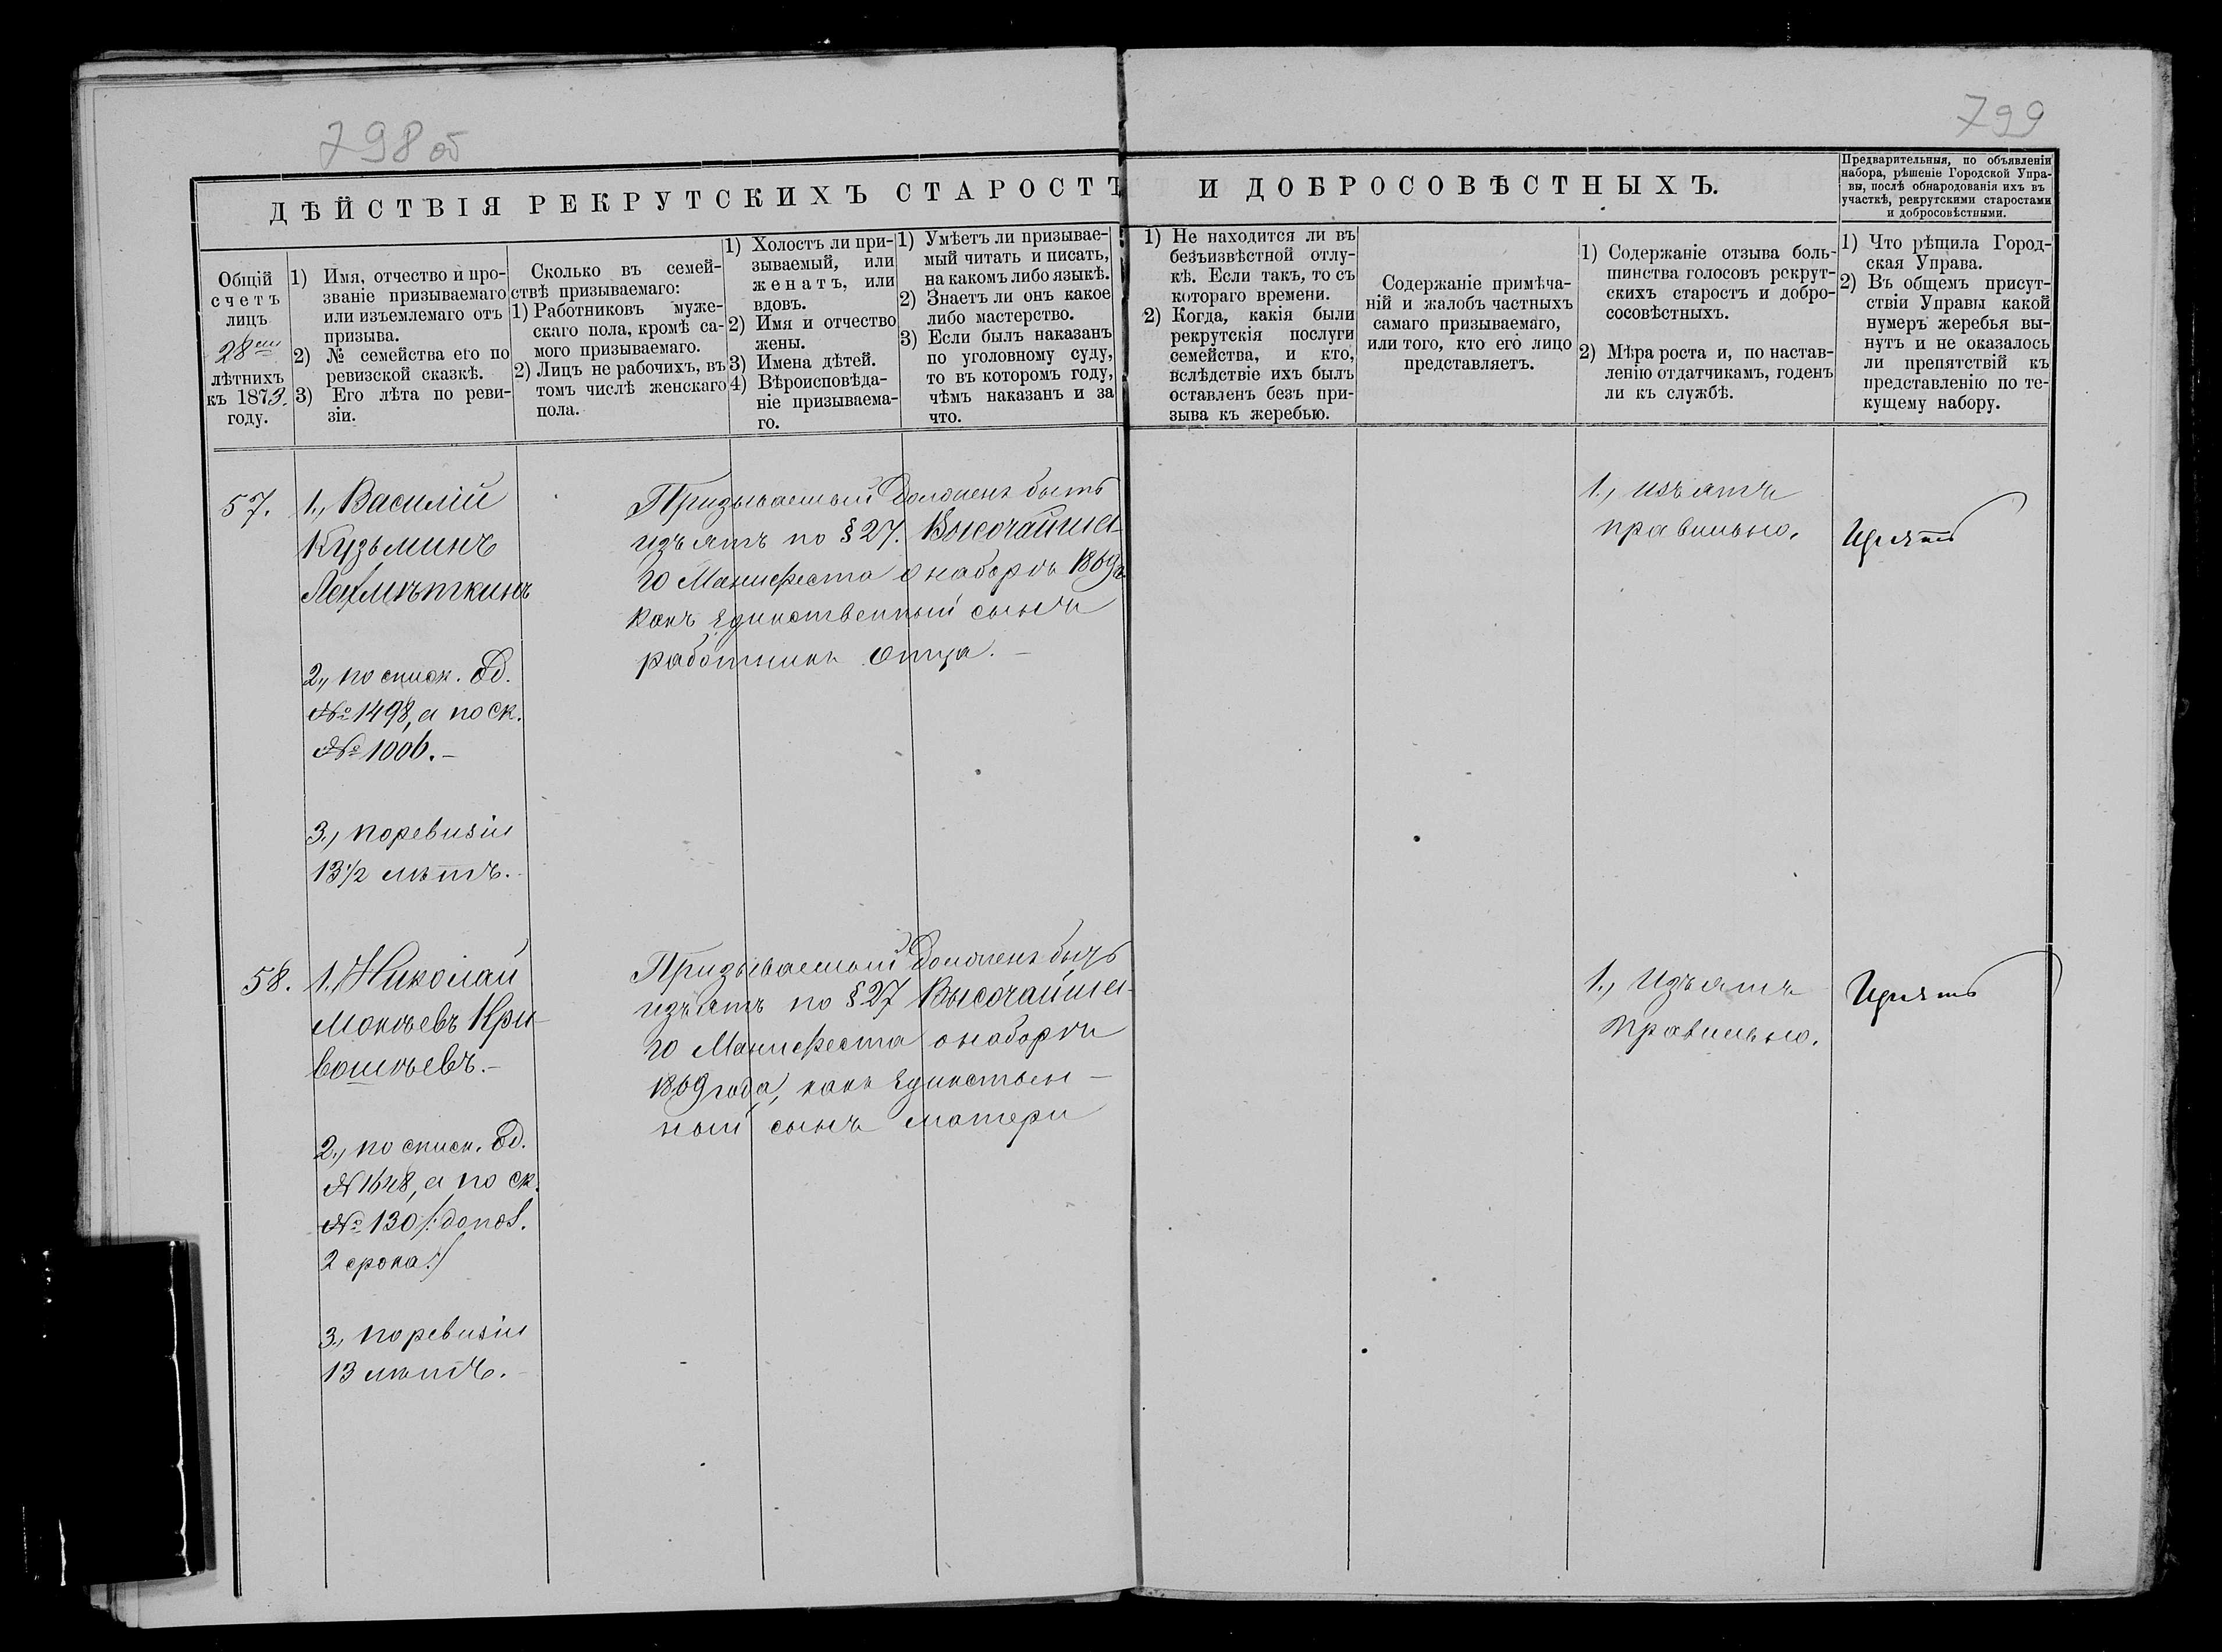 798 об
799
ДѢЙСТВІЯ РЕКРУТСКИХЪ СТАРОСТЪ И ДОБРОСОВѢСТНЫХЪ.
Предварительныя, по объявленіи
набора, рѣшеніе Городской Упра-
вы, послѣ обнародованія ихъ въ
участкѣ, рекрутскими старостами
и добросовѣстными.
Общій
счетъ
лицъ
28ми
лѣтнихъ
къ 1873.
году.
1) Имя, отчество и про-
званіе призываемаго
или изъемлемаго отъ
призыва.
2) № семейства его по
ревизской сказкѣ.
3) Его лѣта по реви-
зіи.
Сколько въ семей-
ствѣ призываемаго:
1) Работниковъ муже-
скаго пола, кромѣ са-
мого призываемаго.
2) Лицъ не рабочихъ, въ
томъ числѣ женскаго
пола.
1) Холостъ ли при-
зываемый, или
женатъ, или
вдовъ.
2) Имя и отчество
жены.
3) Имена дѣтей.
4) Вѣроисповѣда-
ніе призываема-
го.
1) Умѣетъ ли призывае-
мый читать и писать,
на какомъ либо языкѣ.
2) Знаетъ ли онъ какое
либо мастерство.
3) Если былъ наказанъ
по уголовному суду,
то въ которомъ году,
чѣмъ наказанъ и за
что.
1) Не находится ли въ
безъизвѣстной отлу-
кѣ. Если такъ, то съ
котораго времени.
2) Когда, какія были
рекрутскія послуги
семейства, и кто,
вслѣдствіе ихъ былъ
оставленъ безъ при-
зыва къ жеребью.
Содержаніе примѣча-
ній и жалобъ частныхъ
самаго призываемаго,
или того, кто его лицо
представляетъ.
1) Содержаніе отзыва боль-
шинства голосовъ рекрут-
скихъ старостъ и добро-
сосовѣстныхъ.
2) Мѣра роста и, по настав-
ленію отдатчикамъ, годенъ
ли къ службѣ.
1) Что рѣшила Город-
ская Управа.
2) Въ общемъ присут-
ствіи Управы какой
нумеръ жеребья вы-
нутъ и не оказалось
ли препятствій къ
представленію по те-
кущему набору.
57.
1., Василій
Кузьминъ
2., по списк. Од.
№ 1498, а по ск.
№ 1006.–
3., по ревизіи
13½ лѣтъ.
Призываемый долженъ быть
изъятъ по § 27. Высочайша-
го Манифеста о наборѣ 1869 г.
какъ единственный сынъ и
работникъ отца.–
1., изъятъ
правильно.
Изъять
58.
1., Николай
Мокѣевъ Кри-
вошѣевъ.–
2., по списк. Од.
№ 1648, а по ск.
№ 130 /: допол.
2 срока :/
3., по ревизіи
13 лѣтъ.–
Призываемый долженъ быть
изъятъ по § 27 Высочайша-
го Манифеста о наборѣ
1869 года, какъ единствен-
ный сынъ матери
1., Изъятъ
правильно.
Изъять